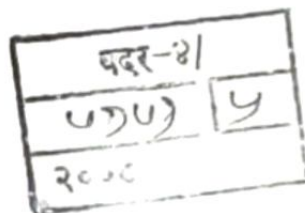 बदर-४/
५७५७ ५
२००८